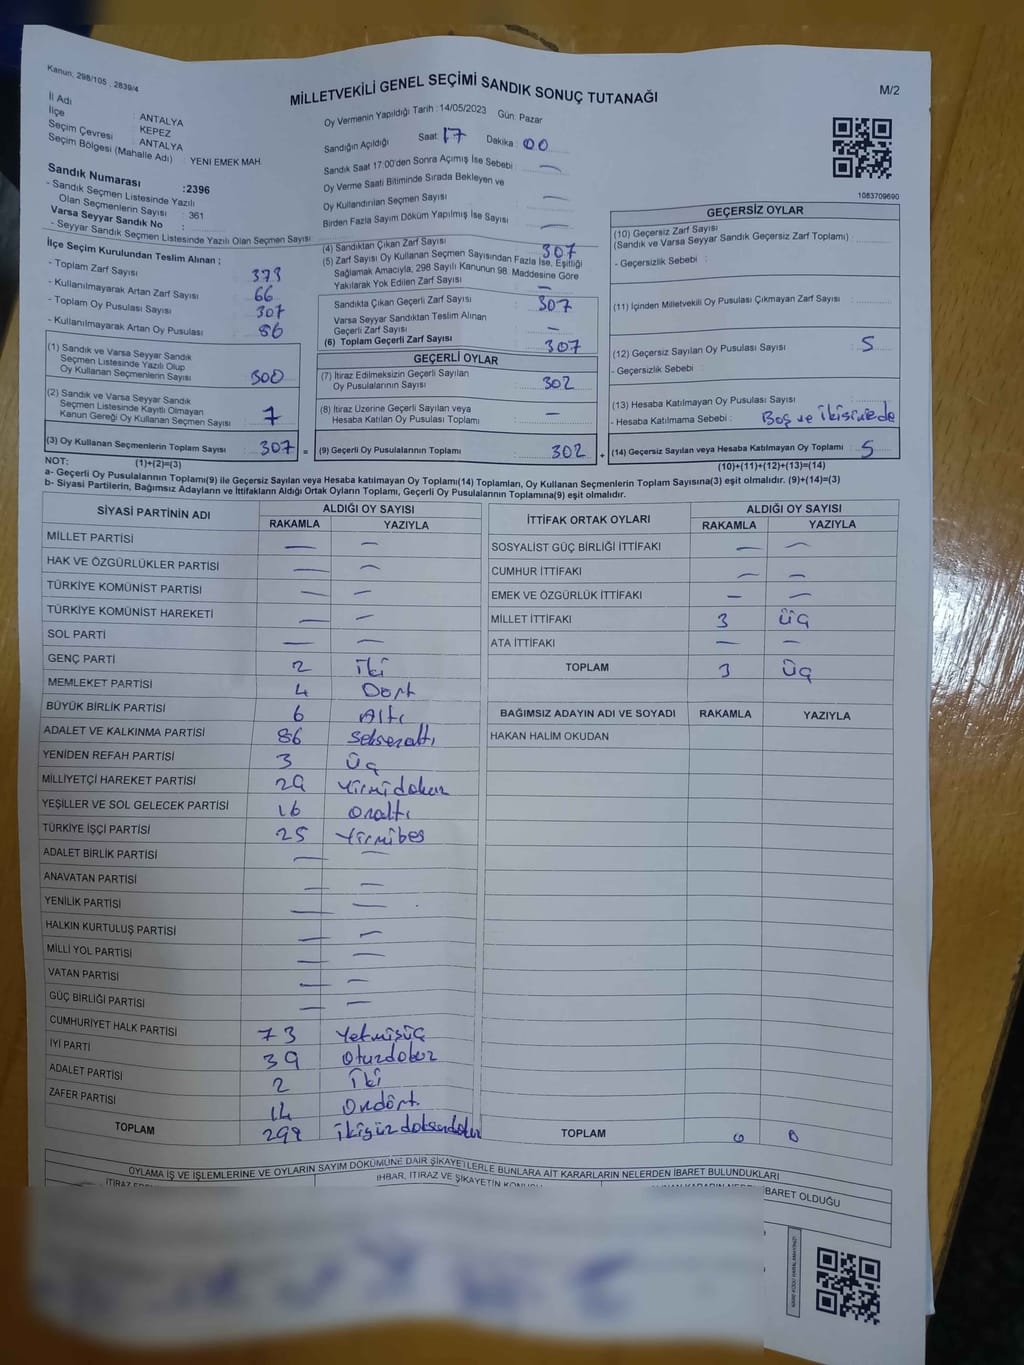 Kanun; 298/105 , 2839/4
MİLLETVEKİLİ GENEL SEÇİMİ SANDIK SONUÇ TUTANAĞI
M/2
İl Adı : ANTALYA
İlçe : KEPEZ
Seçim Çevresi : ANTALYA
Seçim Bölgesi (Mahalle Adı) : YENİ EMEK MAH.
Oy Vermenin Yapıldığı Tarih : 14/05/2023 Gün: Pazar
Sandığın Açıldığı Saat: 17 Dakika: 00
Sandık Saat 17:00'den Sonra Açımış İse Sebebi : —
Oy Verme Saati Bitiminde Sırada Bekleyen ve
Oy Kullandırılan Seçmen Sayısı —
Birden Fazla Sayım Döküm Yapılmış İse Sayısı —
1083709690
Sandık Numarası : 2396
- Sandık Seçmen Listesinde Yazılı
Olan Seçmenlerin Sayısı : 361
Varsa Seyyar Sandık No :
- Seyyar Sandık Seçmen Listesinde Yazılı Olan Seçmen Sayısı :
İlçe Seçim Kurulundan Teslim Alınan ;
- Toplam Zarf Sayısı : 373
- Kullanılmayarak Artan Zarf Sayısı : 66
- Toplam Oy Pusulası Sayısı : 307
- Kullanılmayarak Artan Oy Pusulası : 86
(1) Sandık ve Varsa Seyyar Sandık
Seçmen Listesinde Yazılı Olup
Oy Kullanan Seçmenlerin Sayısı : 300
(2) Sandık ve Varsa Seyyar Sandık
Seçmen Listesinde Kayıtlı Olmayan
Kanun Gereği Oy Kullanan Seçmen Sayısı : 7
(3) Oy Kullanan Seçmenlerin Toplam Sayısı : 307 =
(4) Sandıktan Çıkan Zarf Sayısı : 307
(5) Zarf Sayısı Oy Kullanan Seçmen Sayısından Fazla İse, Eşitliği
Sağlamak Amacıyla, 298 Sayılı Kanunun 98. Maddesine Göre
Yakılarak Yok Edilen Zarf Sayısı : —
Sandıkta Çıkan Geçerli Zarf Sayısı : 307
Varsa Seyyar Sandıktan Teslim Alınan
Geçerli Zarf Sayısı : —
(6) Toplam Geçerli Zarf Sayısı : 307
GEÇERLİ OYLAR
(7) İtiraz Edilmeksizin Geçerli Sayılan
Oy Pusulalarının Sayısı : 302
(8) İtiraz Üzerine Geçerli Sayılan veya
Hesaba Katılan Oy Pusulası Toplamı : —
(9) Geçerli Oy Pusulalarının Toplamı : 302 +
GEÇERSİZ OYLAR
(10) Geçersiz Zarf Sayısı
(Sandık ve Varsa Seyyar Sandık Geçersiz Zarf Toplamı) :
- Geçersizlik Sebebi :
(11) İçinden Milletvekili Oy Pusulası Çıkmayan Zarf Sayısı :
(12) Geçersiz Sayılan Oy Pusulası Sayısı : 5
- Geçersizlik Sebebi :
(13) Hesaba Katılmayan Oy Pusulası Sayısı :
- Hesaba Katılmama Sebebi : Boş ve
(14) Geçersiz Sayılan veya Hesaba Katılmayan Oy Toplamı : 5
NOT: (1)+(2)=(3)
(10)+(11)+(12)+(13)=(14)
a- Geçerli Oy Pusulalarının Toplamı(9) ile Geçersiz Sayılan veya Hesaba katılmayan Oy Toplamı(14) Toplamları, Oy Kullanan Seçmenlerin Toplam Sayısına(3) eşit olmalıdır. (9)+(14)=(3)
b- Siyasi Partilerin, Bağımsız Adayların ve İttifakların Aldığı Ortak Oyların Toplamı, Geçerli Oy Pusulalarının Toplamına(9) eşit olmalıdır.
SİYASİ PARTİNİN ADI ALDIĞI OY SAYISI
RAKAMLA YAZIYLA
MİLLET PARTİSİ — —
HAK VE ÖZGÜRLÜKLER PARTİSİ — —
TÜRKİYE KOMÜNİST PARTİSİ — —
TÜRKİYE KOMÜNİST HAREKETİ — —
SOL PARTİ — —
GENÇ PARTİ 2 İki
MEMLEKET PARTİSİ 4 Dört
BÜYÜK BİRLİK PARTİSİ 6 Altı
ADALET VE KALKINMA PARTİSİ 86 Seksenaltı
YENİDEN REFAH PARTİSİ 3 Üç
MİLLİYETÇİ HAREKET PARTİSİ 29 Yirmidokuz
YEŞİLLER VE SOL GELECEK PARTİSİ 16 Onaltı
TÜRKİYE İŞÇİ PARTİSİ 25 Yirmibeş
ADALET BİRLİK PARTİSİ — —
ANAVATAN PARTİSİ — —
YENİLİK PARTİSİ — —
HALKIN KURTULUŞ PARTİSİ — —
MİLLİ YOL PARTİSİ — —
VATAN PARTİSİ — —
GÜÇ BİRLİĞİ PARTİSİ — —
CUMHURİYET HALK PARTİSİ 73 Yetmişüç
İYİ PARTİ 39 Otuzdokuz
ADALET PARTİSİ 2 İki
ZAFER PARTİSİ 14 Ondört
TOPLAM 299 ikiyüzdoksandokuz
İTTİFAK ORTAK OYLARI ALDIĞI OY SAYISI
RAKAMLA YAZIYLA
SOSYALİST GÜÇ BİRLİĞİ İTTİFAKI — —
CUMHUR İTTİFAKI — —
EMEK VE ÖZGÜRLÜK İTTİFAKI — —
MİLLET İTTİFAKI 3 Üç
ATA İTTİFAKI — —
TOPLAM 3 Üç
BAĞIMSIZ ADAYIN ADI VE SOYADI RAKAMLA YAZIYLA
HAKAN HALİM OKUDAN
TOPLAM 0 0
OYLAMA İŞ VE İŞLEMLERİNE VE OYLARIN SAYIM DÖKÜMÜNE DAİR ŞİKAYETLERLE BUNLARA AİT KARARLARIN NELERDEN İBARET BULUNDUKLARI
İHBAR, İTİRAZ VE ŞİKAYETİN KONUSU
İBARET OLDUĞU